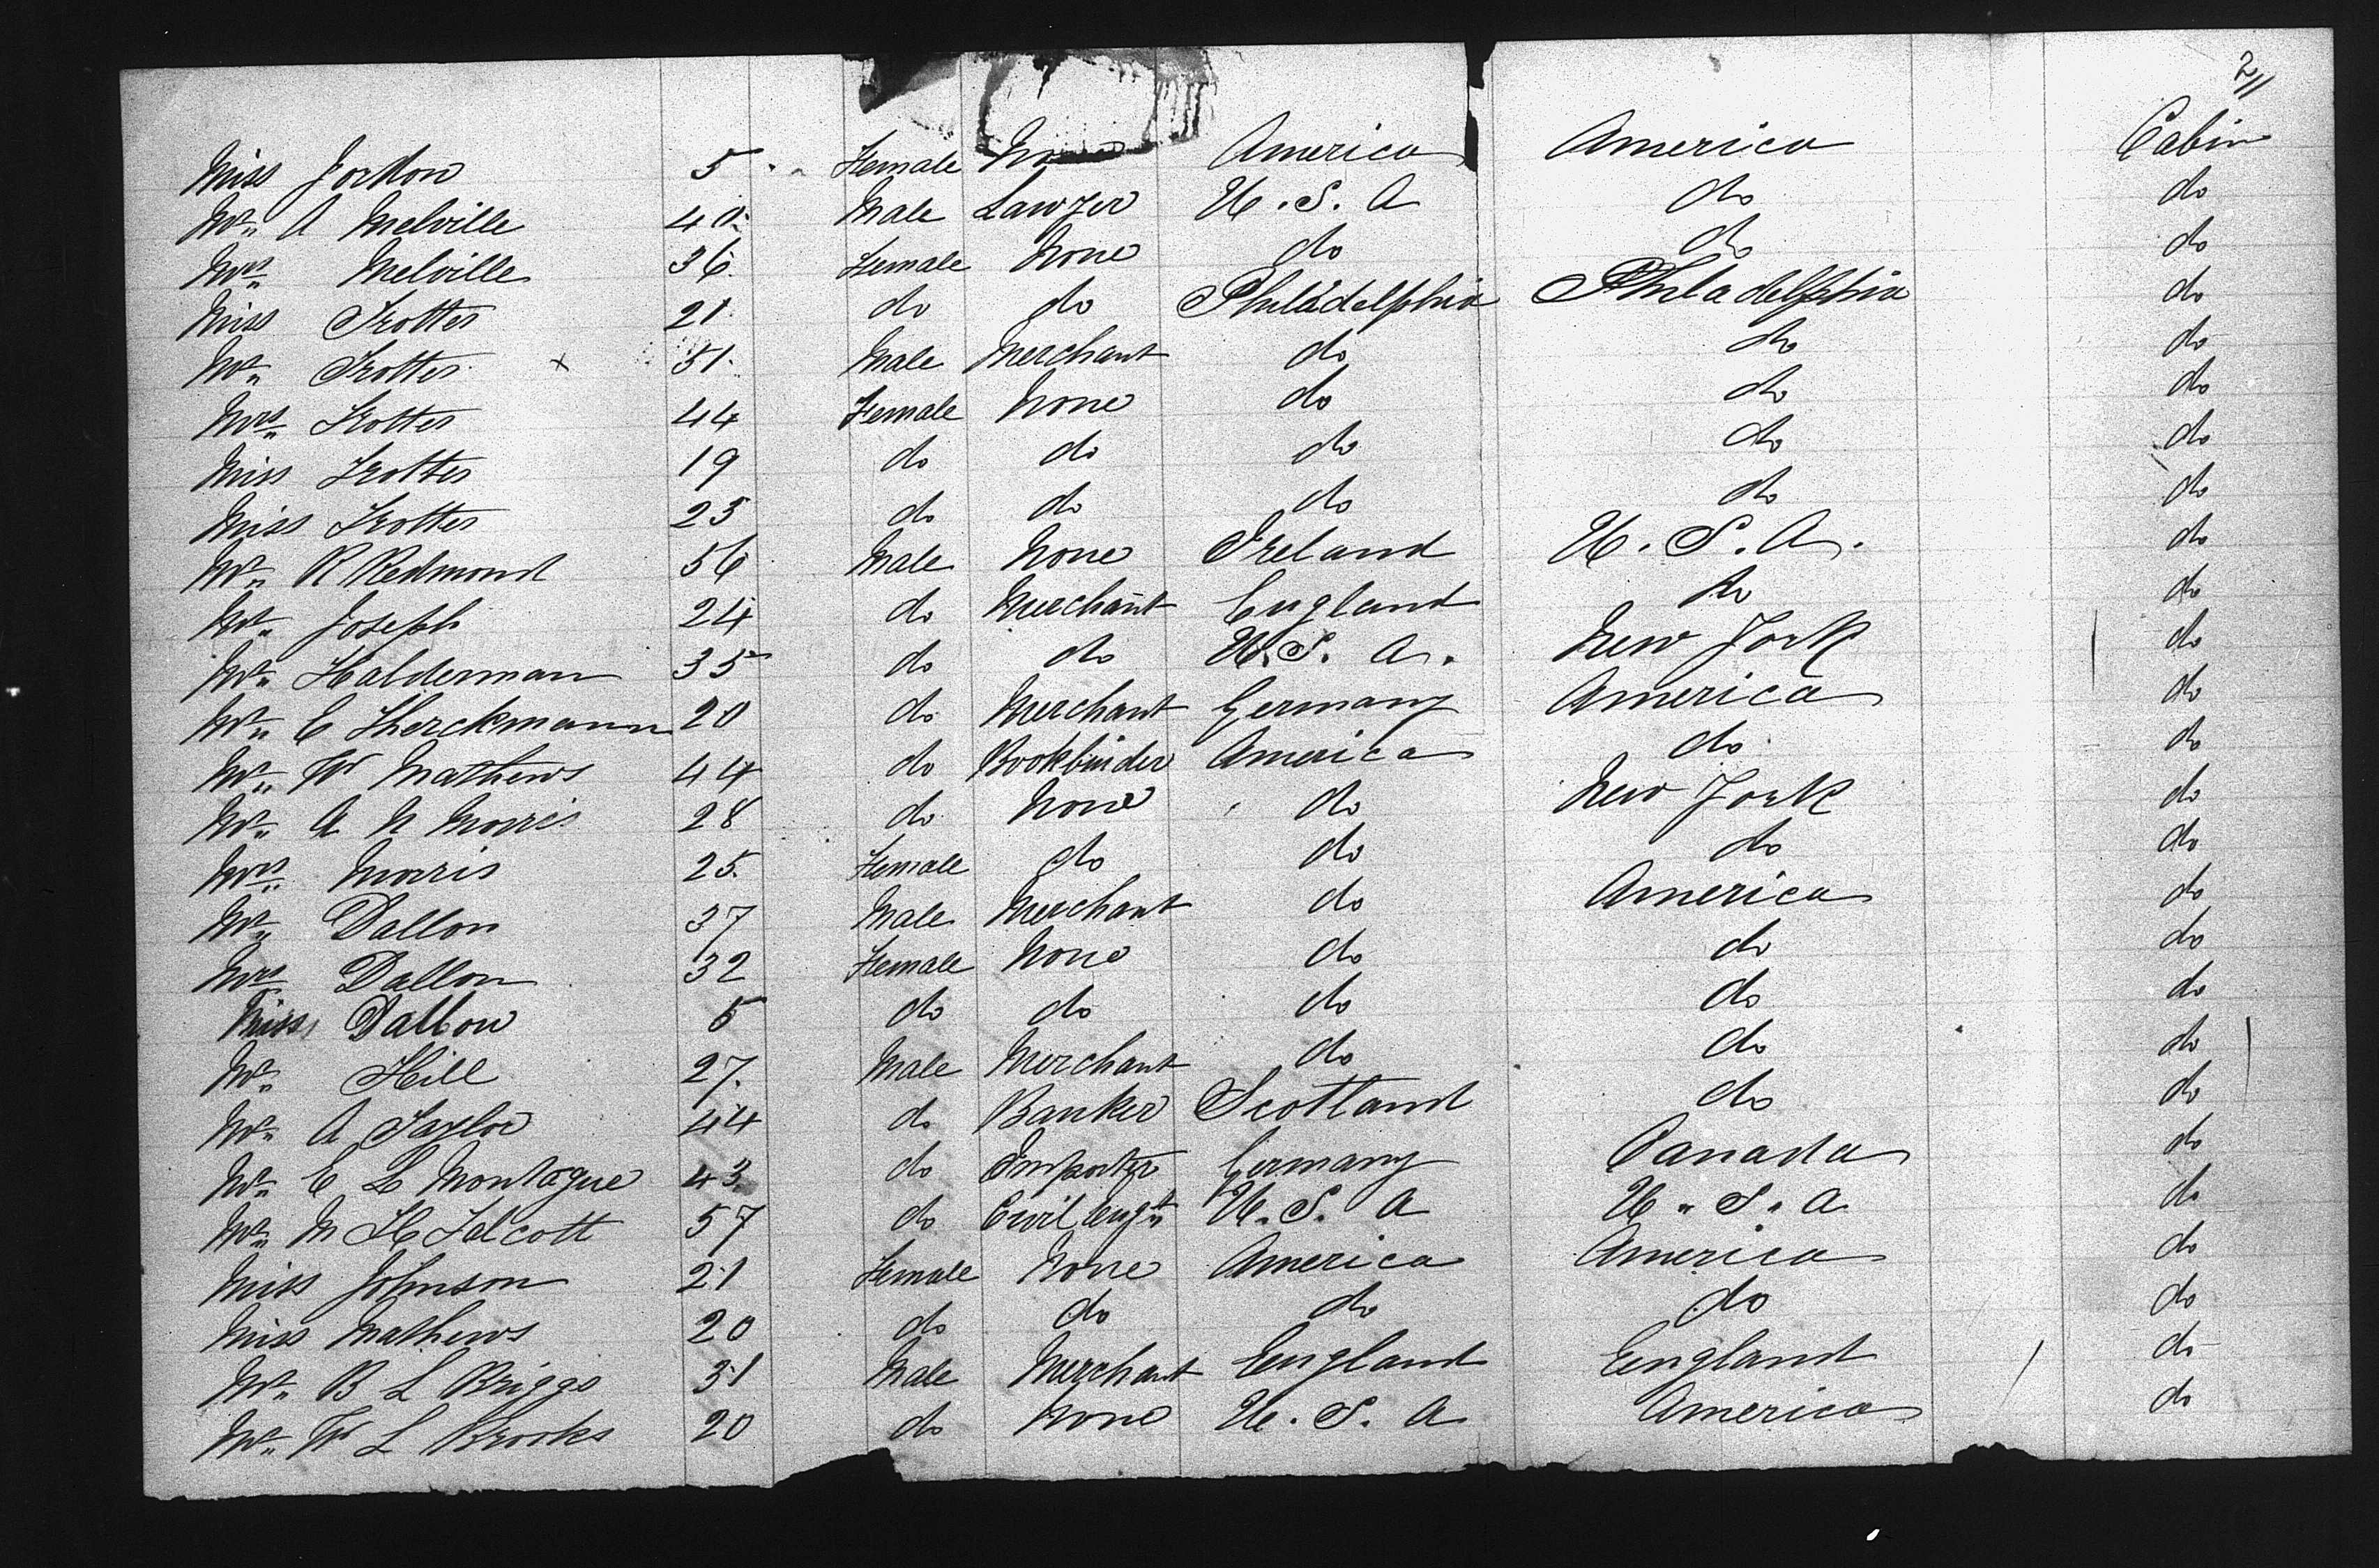 2
Miss Jordon 5 Female America America Cabin
Mr A Melville 40 Male Lawyer U.S.A do do
Mrs Melville 36 Female None do do do
Miss Trotter 21 do do Philadelphia Philadelphia do
Mr Trotter x 51 Male Merchant do do do
Mrs Trotter 44 Female None do do do
Miss Trotter 19 do do do do do
Miss Trotter 23 do do do do do
Mr R Redmond 56 Male None Ireland U.S.A. do
Mr Joseph 24 do Merchant England do do
Mr Halderman 35 do do U.S.A. New York do
Mr C 20 do Merchant Germany America do
Mr W Mathews 44 do Bookbinder America do do
Mr A N Morris 28 do None do New York do
Mrs Morris 25 Female do do do do
Mr Dallon 37 Male Merchant do America do
Mrs Dallon 32 Female None do do do
Miss Dallon 5 do do do do do
Mr Hill 27 Male Merchant do do do
Mr A Taylor 44 do Banker Scotland do do
Mr E L Montague 43 do Importer Germany Canada do
Mr M H 57 do Civil Engr U.S.A U.S.A do
Miss Johnson 21 Female None America America do
Miss Mathews 20 do do do do do
Mr B L Briggs 31 Male Merchant England England do
Mr W L Brooks 20 do None U.S.A America do